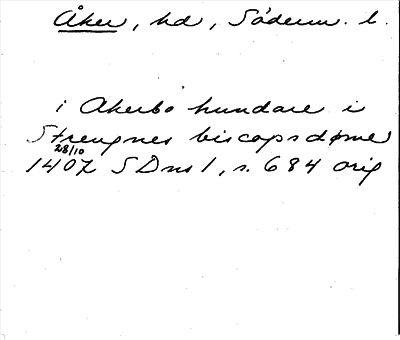 Åker, hd, Söderm. l.
i Akerbo hundare i
Strengnes biscopsdøme
28/10
1407 SDns 1, s. 684 orig